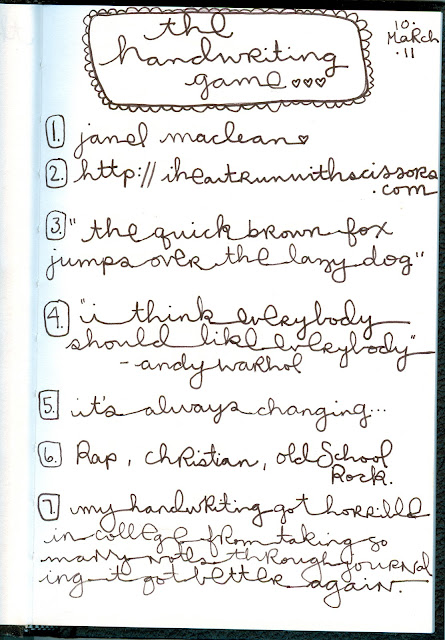 the
handwriting
game ♡♡♡
10.
March
.11
1. janel maclean ♡
2. http://iheartrunwithscissors
.com
3. "the quick brown fox
jumps over the lazy dog"
4. "i think everybody
should like everybody"
- andy warhol
5. it's always changing...
6. Rap, christian, old School
Rock.
7. my handwriting got horrible
in college from taking so
many notes through journal
ing it got better again.